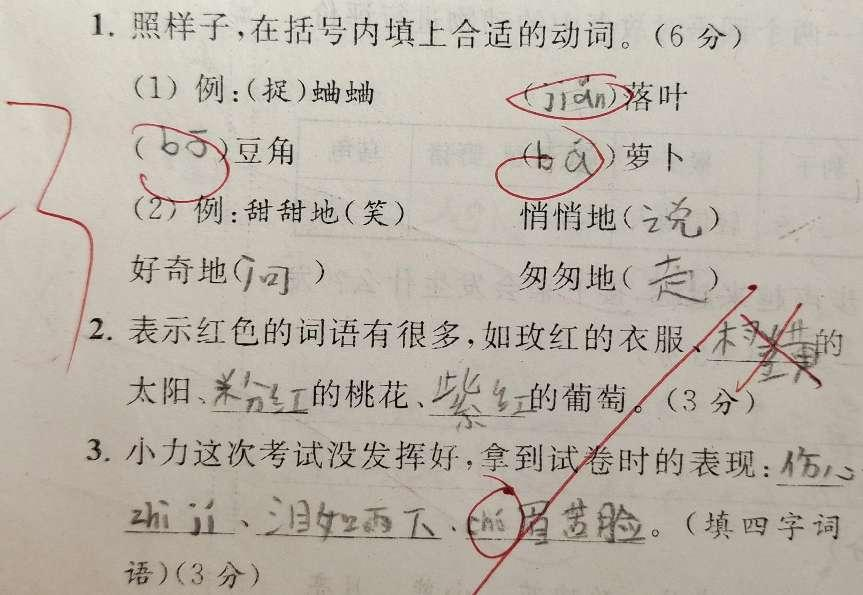 1. 照样子,在括号内填上合适的动词。(6分)
(1) 例:(捉)蛐蛐 (jiǎn)落叶
(bō)豆角 (bá)萝卜
(2) 例:甜甜地(笑) 悄悄地(说)
好奇地(问) 匆匆地(走)
2. 表示红色的词语有很多,如玫红的衣服、橙黄的
太阳、粉红的桃花、紫红的葡萄。(3分)
3. 小力这次考试没发挥好,拿到试卷时的表现:伤心
zhi jí、泪如雨下、chó眉苦脸。(填四字词
语)(3分)